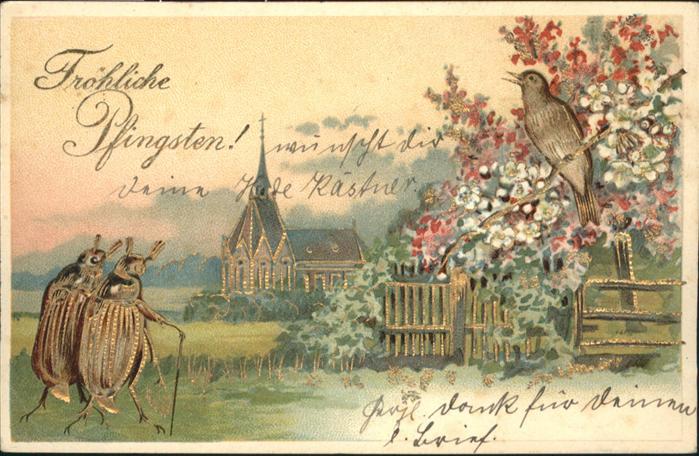 Fröhliche
Pfingsten! wünscht dir
deine Kästner.
Herzl. Dank für deinen
l. Brief.